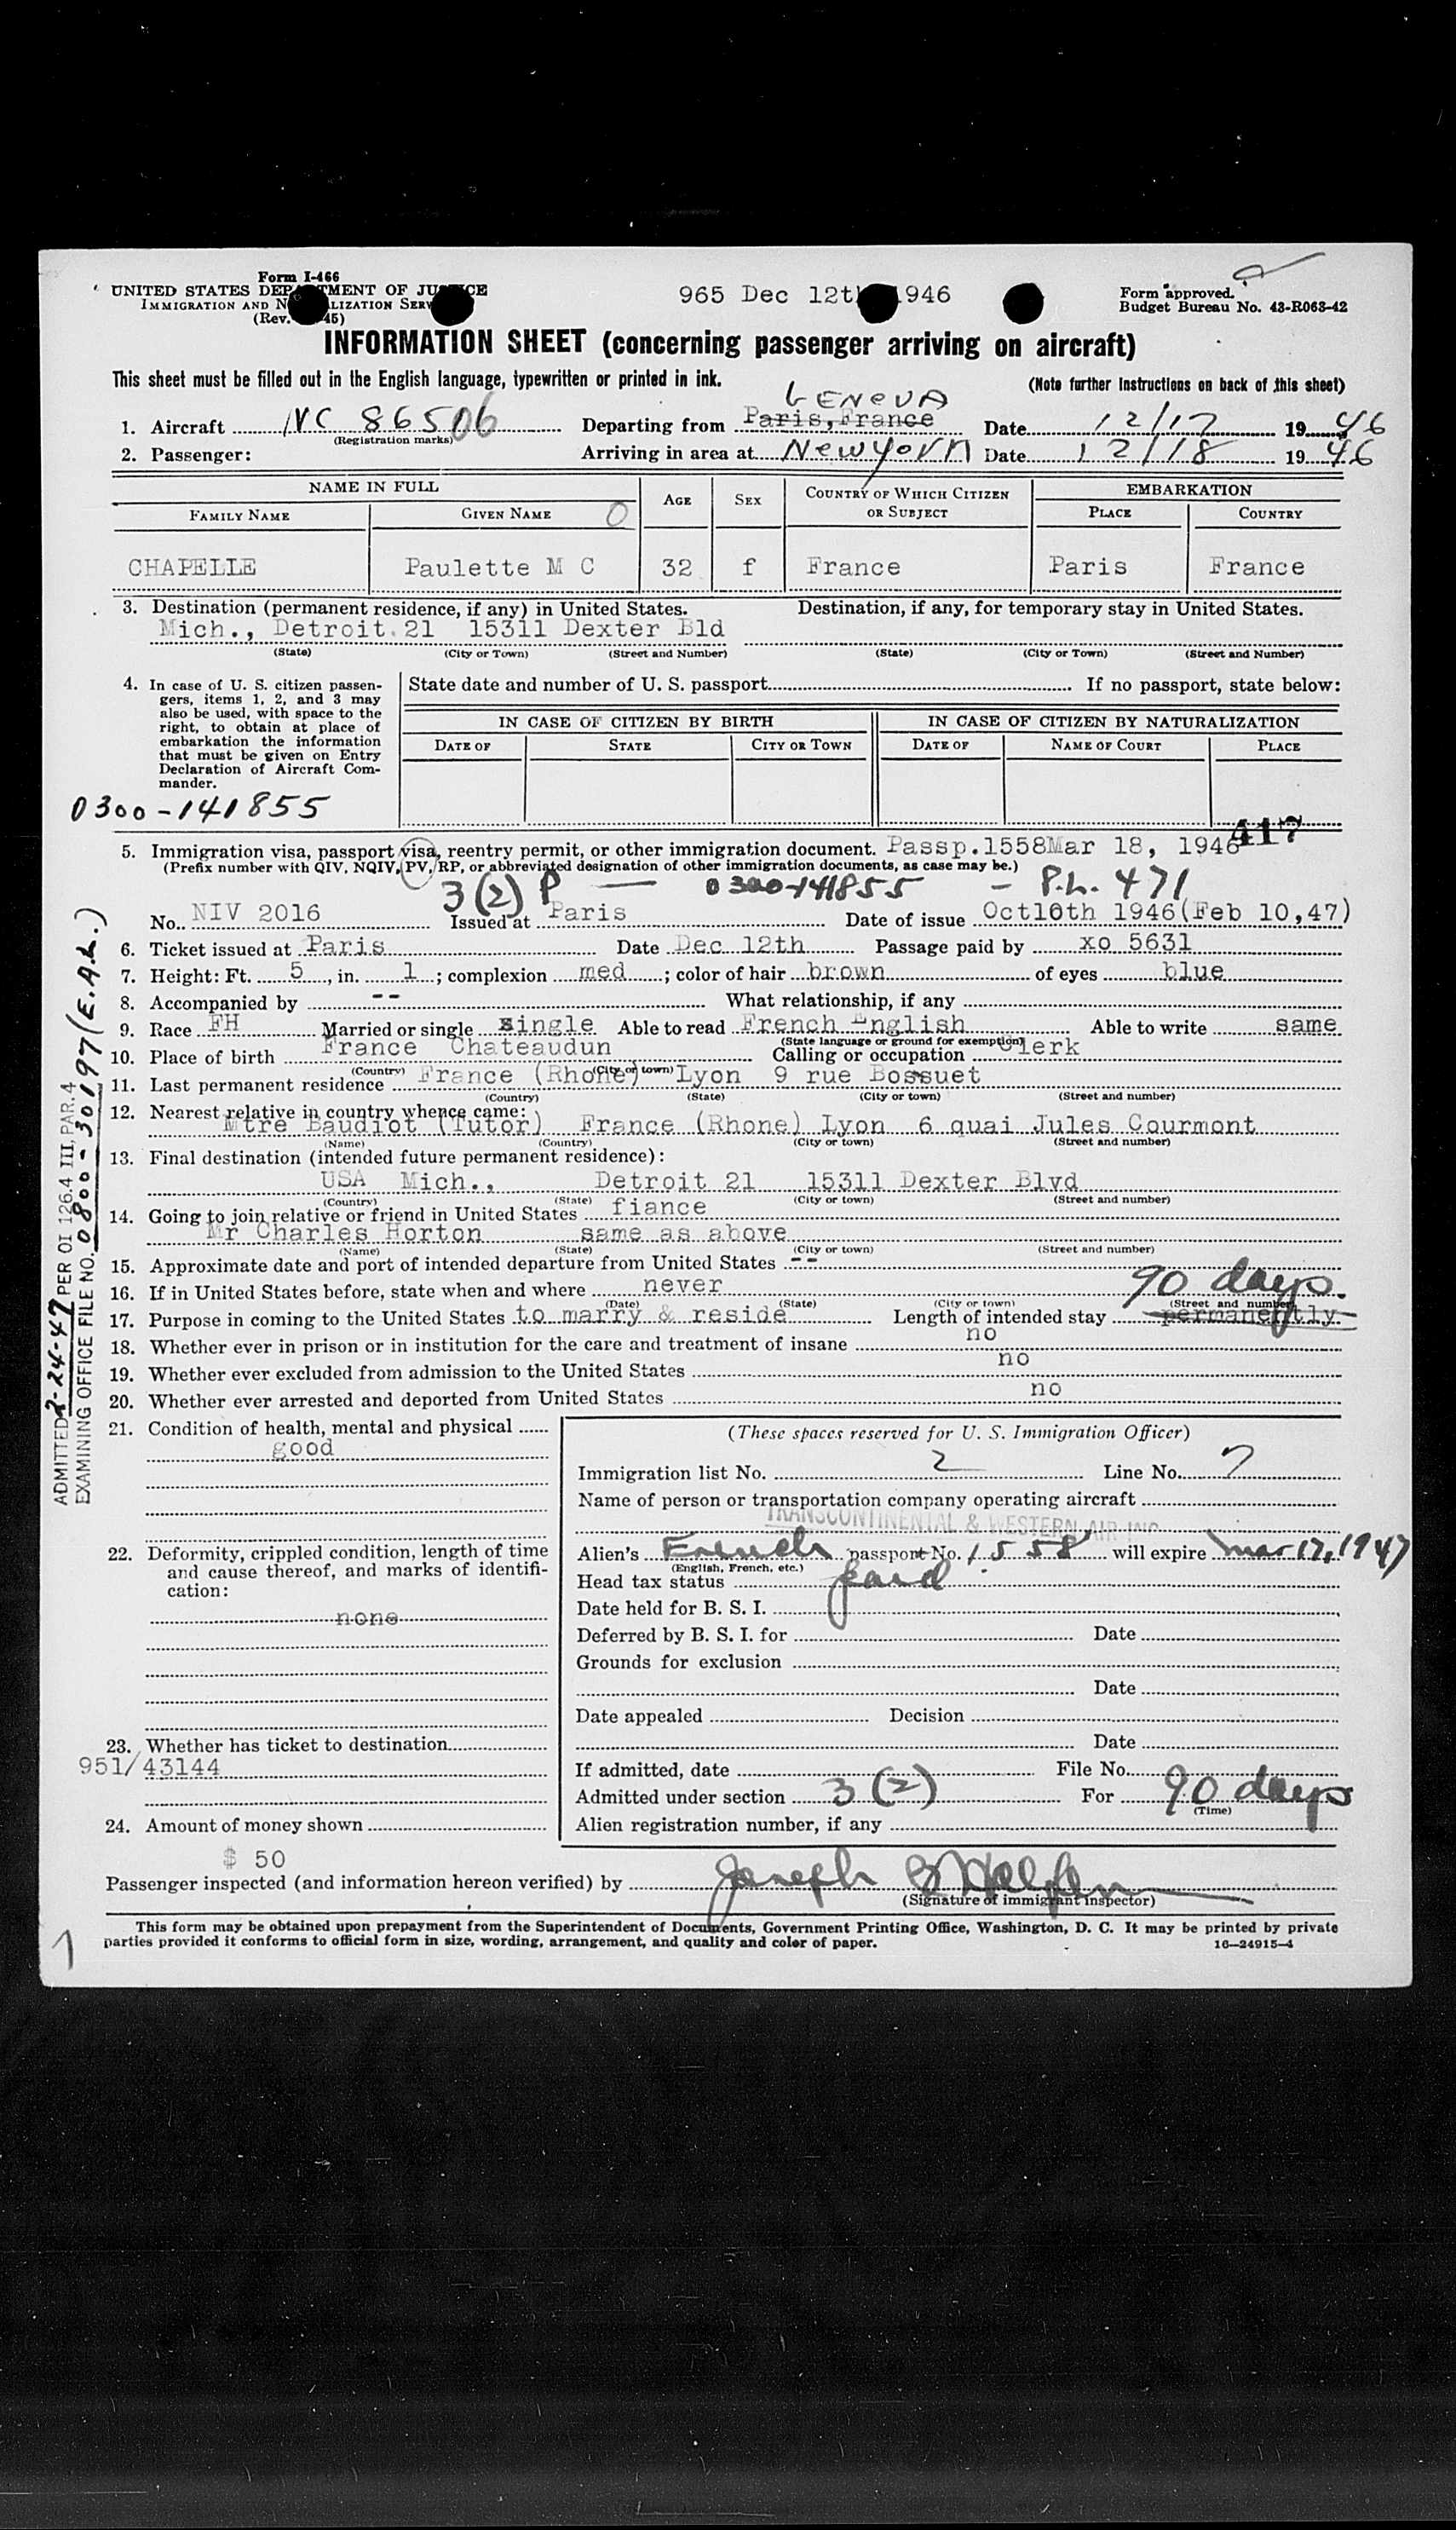 Form I-466
UNITED STATES DEPARTMENT OF JUSTICE
IMMIGRATION AND NATURALIZATION SERVICE
(Rev. 45)
965 Dec 12th 1946
Form approved.
Budget Bureau No. 43-R063-42
INFORMATION SHEET (concerning passenger arriving on aircraft)
This sheet must be filled out in the English language, typewritten or printed in ink.
(Note further instructions on back of this sheet)
GENEVA
1. Aircraft NC 86506 Departing from Paris, France Date 12/17 1946
(Registration marks)
2. Passenger: Arriving in area at New York Date 12/18 1946
NAME IN FULL AGE SEX COUNTRY OF WHICH CITIZEN OR SUBJECT EMBARKATION
FAMILY NAME GIVEN NAME PLACE COUNTRY
CHAPELLE Paulette M C 32 f France Paris France
3. Destination (permanent residence, if any) in United States. Destination, if any, for temporary stay in United States.
Mich., Detroit 21 15311 Dexter Bld
(State) (City or Town) (Street and Number) (State) (City or Town) (Street and Number)
4. In case of U. S. citizen passen-
gers, items 1, 2, and 3 may
also be used, with space to the
right, to obtain at place of
embarkation the information
that must be given on Entry
Declaration of Aircraft Com-
mander.
State date and number of U. S. passport If no passport, state below:
IN CASE OF CITIZEN BY BIRTH IN CASE OF CITIZEN BY NATURALIZATION
DATE OF STATE CITY OR TOWN DATE OF NAME OF COURT PLACE
0300-141855
417
5. Immigration visa, passport visa, reentry permit, or other immigration document. Passp.1558Mar 18, 1946
(Prefix number with QIV, NQIV, PV, RP, or abbreviated designation of other immigration documents, as case may be.)
3(2) P — 0300-141855 - P.L. 471
No. NIV 2016 Issued at Paris Date of issue Oct10th 1946(Feb 10,47)
6. Ticket issued at Paris Date Dec 12th Passage paid by xo 5631
7. Height: Ft. 5, in. 1; complexion med; color of hair brown of eyes blue
8. Accompanied by -- What relationship, if any
9. Race FH Married or single single Able to read French English Able to write same
(State language or ground for exemption)
10. Place of birth France Chateaudun Calling or occupation Clerk
(Country) (City or town)
11. Last permanent residence France (Rhone) Lyon 9 rue Bossuet
(Country) (State) (City or town) (Street and number)
12. Nearest relative in country whence came:
Mtre Baudiot (Tutor) France (Rhone) Lyon 6 quai Jules Courmont
(Name) (Country) (City or town) (Street and number)
13. Final destination (intended future permanent residence):
USA Mich., Detroit 21 15311 Dexter Blvd
(Country) (State) (City or town) (Street and number)
14. Going to join relative or friend in United States fiance
Mr Charles Horton same as above
(Name) (State) (City or town) (Street and number)
15. Approximate date and port of intended departure from United States --
16. If in United States before, state when and where never
(Date) (State) (City or town) (Street and number)
90 days.
17. Purpose in coming to the United States to marry & reside Length of intended stay permanently
18. Whether ever in prison or in institution for the care and treatment of insane no
19. Whether ever excluded from admission to the United States no
20. Whether ever arrested and deported from United States no
21. Condition of health, mental and physical
good
22. Deformity, crippled condition, length of time
and cause thereof, and marks of identifi-
cation:
none
23. Whether has ticket to destination
951/43144
24. Amount of money shown
$ 50
(These spaces reserved for U. S. Immigration Officer)
Immigration list No. 2 Line No. 7
Name of person or transportation company operating aircraft
TRANSCONTINENTAL & WESTERN AIR INC
Alien's French passport No. 1558 will expire Mar 17, 1947
(English, French, etc.)
Head tax status paid
Date held for B. S. I.
Deferred by B. S. I. for Date
Grounds for exclusion
Date
Date appealed Decision
Date
If admitted, date File No.
Admitted under section 3(2) For 90 days
(Time)
Alien registration number, if any
Passenger inspected (and information hereon verified) by Joseph
(Signature of immigrant inspector)
This form may be obtained upon prepayment from the Superintendent of Documents, Government Printing Office, Washington, D. C. It may be printed by private
parties provided it conforms to official form in size, wording, arrangement, and quality and color of paper.
16-24915-4
1
ADMITTED 2-24-47 PER OI 126.4 III, PAR. 4
EXAMINING OFFICE FILE NO. 0800-30197 (E.A.L.)